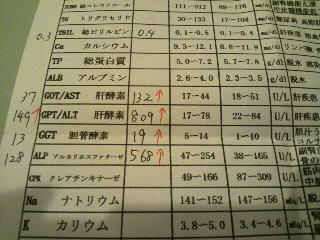 TCHO 総コレステロール 111~312 89~176 mg/dl
TG トリグリセリド 30~133 17~104 mg/dl
0.3 TBIL 総ビリルビン 0.4 0.1~0.5 0.1~0.4 mg/dl
Ca カルシウム 9.3~12.1 8.8~11.9 mg/dl
TP 総蛋白質 5.0~7.2 5.7~7.8 g/dl
ALB アルブミン 2.6~4.0 2.3~3.5 g/dl
37 GOT/AST 肝酵素 132↑ 17~44 18~51 U/L 肝疾患
149↑ GPT/ALT 肝酵素 809↑ 17~78 22~84 U/L 肝疾患
13 GGT 胆管酵素 19↑ 5~14 1~10 U/L
128 ALP アルカリホスファターゼ 568↑ 47~254 38~165 U/L
CPK クレアチンキナーゼ 49~166 87~309 U/L
Na ナトリウム 141~152 147~156 m/L
K カリウム 3.8~5.0 3.4~4.6